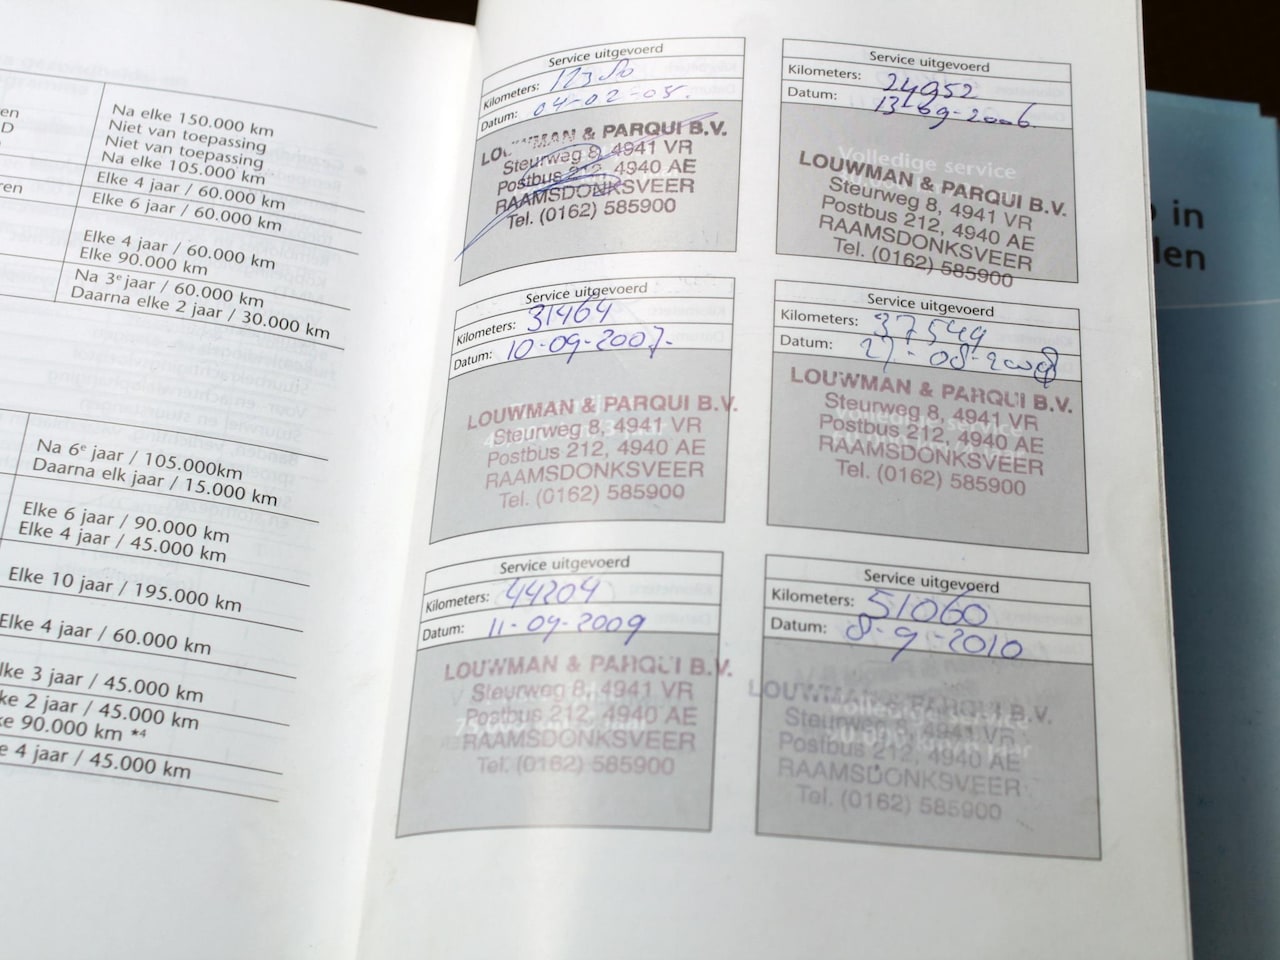 Na elke 150.000 km
Niet van toepassing
Niet van toepassing
Na elke 105.000 km
Elke 4 jaar / 60.000 km
Elke 6 jaar / 60.000 km
Elke 4 jaar / 60.000 km
Elke 90.000 km
Na 3e jaar / 60.000 km
Daarna elke 2 jaar / 30.000 km
Na 6e jaar / 105.000km
Daarna elk jaar / 15.000 km
Elke 6 jaar / 90.000 km
Elke 4 jaar / 45.000 km
Elke 10 jaar / 195.000 km
Elke 4 jaar / 60.000 km
lke 3 jaar / 45.000 km
ke 2 jaar / 45.000 km
ke 90.000 km *4
e 4 jaar / 45.000 km
Service uitgevoerd
Kilometers:
Datum: 04-02-05.
LOUWMAN & PARQUI B.V.
Steurweg 8, 4941 VR
Postbus 212, 4940 AE
RAAMSDONKSVEER
Tel. (0162) 585900
Service uitgevoerd
Kilometers: 24952
Datum: 13-09-2006.
Volledige service
LOUWMAN & PARQUI B.V.
Steurweg 8, 4941 VR
Postbus 212, 4940 AE
RAAMSDONKSVEER
Tel. (0162) 585900
Service uitgevoerd
Kilometers: 31464
Datum: 10-09-2007.-
LOUWMAN & PARQUI B.V.
Steurweg 8, 4941 VR
Postbus 212, 4940 AE
RAAMSDONKSVEER
Tel. (0162) 585900
Service uitgevoerd
Kilometers: 37549
Datum: 27-08-2008
LOUWMAN & PARQUI B.V.
Steurweg 8, 4941 VR
Postbus 212, 4940 AE
RAAMSDONKSVEER
Tel. (0162) 585900
Service uitgevoerd
Kilometers: 44204
Datum: 11-09-2009
LOUWMAN & PARQUI B.V.
Steurweg 8, 4941 VR
Postbus 212, 4940 AE
RAAMSDONKSVEER
Tel. (0162) 585900
Service uitgevoerd
Kilometers: 51060
Datum: 8-9-2010
LOUWMAN & PARQUI B.V.
Steurweg 8, 4941 VR
Postbus 212, 4940 AE
RAAMSDONKSVEER
Tel. (0162) 585900
in